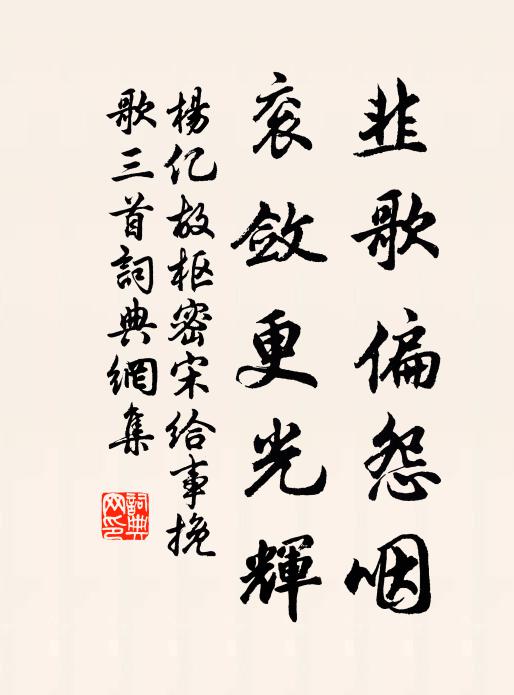 韭歌偏怨咽
衮斂更光輝
楊亿故枢密宋给事挽
歌三首詞典網集
詞典网印